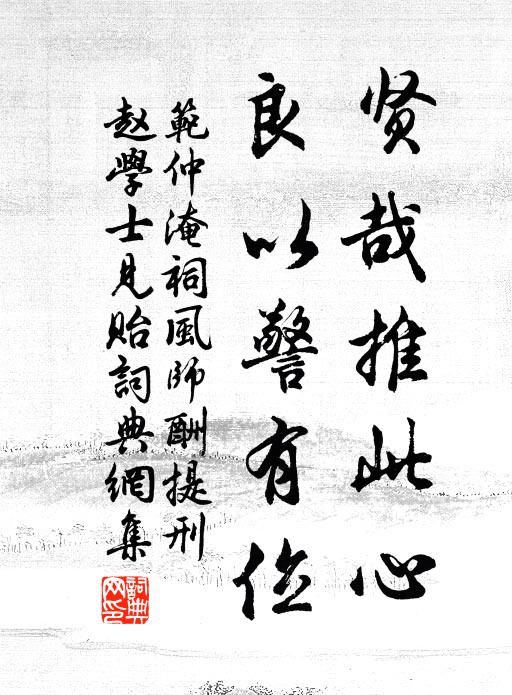 贤哉推此心
良以警有位
範仲淹祠風師酬提刑
赵學士見貽詞典網集
詞典
网印